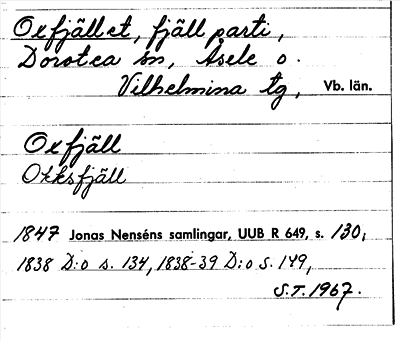 Oxfjället, fjäll parti,
Dorotea sn, Åsele o.
Vilhelmina tg, Vb. län.
Oxfjäll
Okksfjäll
1847 Jonas Nenséns samlingar, UUB R 649, s. 130,
1838 D:o s. 134, 1838-39 D:o S. 149,
S.T. 1967.